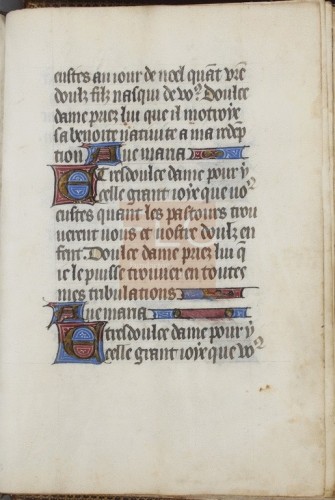 eustes au iour de noel quāt vrē
doulz filz nasqui de voꝰ. Doulce
dame priez lui que il motroye
sa benoite natiuite a ma redēp
tion Aue maria
E tresdoulce dame pour y
celle grant ioye que vo⁹
eustes quant les pastours trou
uerent vous et vostre doulz en
fent. Doulce dame priez lui q̄
ie le puisse trouuer en toutes
mes tribulations
Aue maria
E tresdoulce dame pour y
celle grant ioye que voꝰ